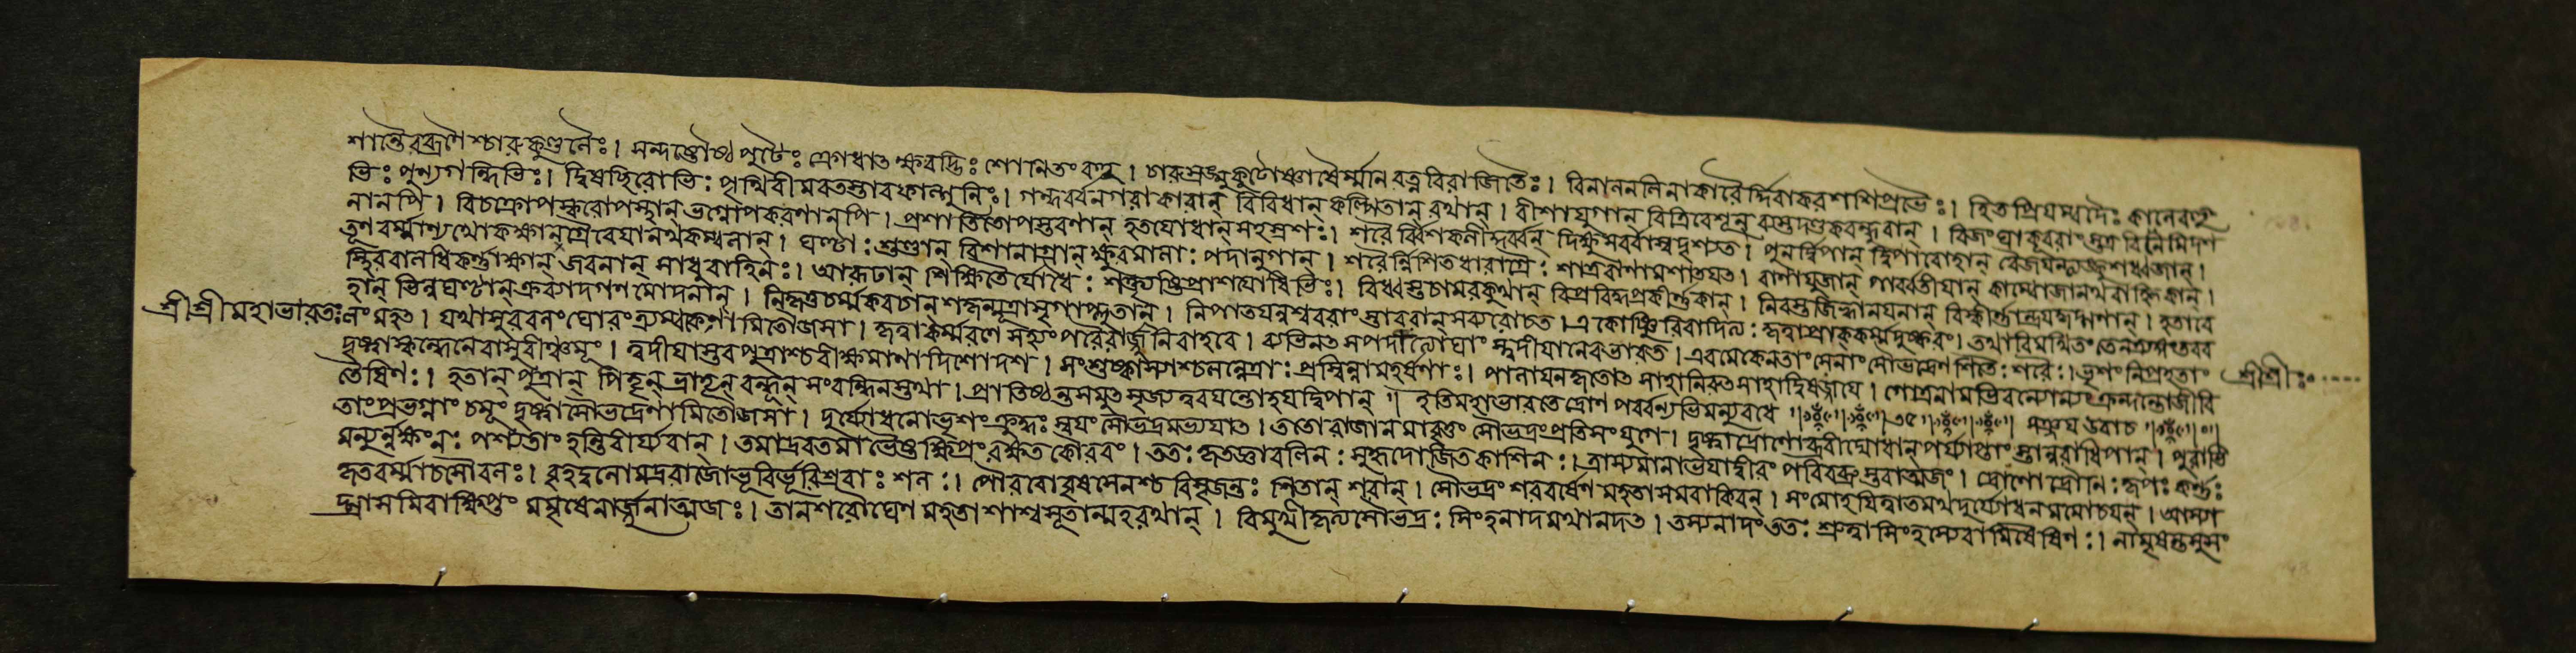 শান্তৈরব্রণৈশ্চারুকুণ্ডলৈঃ। সন্দষ্টৌষ্ঠপুটৈঃ ক্রোধাত ক্ষরদ্ভিঃ শোনিতং বহু। চারুস্রঙ্মুকুটোষ্ণীষৈর্ম্মনিরত্নবিরাজিতৈঃ। বিনালনলিনাকারৈর্দ্দিবাকরশশিপ্রভৈঃ। হিতপ্রিয়ম্বদৈঃ কালেবহু
ভিঃ পুণ্যগন্ধিভিঃ। দ্বিষচ্ছিরোভিঃ পৃথিবীমবতস্তারফাল্গুনিঃ। গন্ধর্ব্বনগরাকারান্ বিবিধান্ কল্পিতান্ রথান্। বীশাযুগান্ বিত্রিবেণূন্ ব্যস্তদণ্ডকবন্ধুরান্। বিজংঘাকূবরাং স্তত্র বিনেমিদশ
নানপি। বিচক্রোপস্করোপস্থান্ ভগ্নোপকরণানপি। প্রশাতিতোপস্তরণান্ হতযোধান্ সহস্রশঃ। শরৈর্ব্বিশকলীকুর্ব্বন্ দিক্ষুসর্ব্বাস্বদৃশ্যত। পুনর্দ্বিপান্ দ্বিপারোহান্ বৈজয়ন্ত্যঙ্কুশধ্বজান্।
তূণবর্ম্মাণ্যথোকক্ষান্ গ্রৈবেয়ানথকম্বলান্। ঘণ্টাঃ শুণ্ডান্ বিশানাগ্রান্ ক্ষুরমালাঃ পদানুগান্। শরৈর্ন্নিশিতধারাগ্রৈঃ শাত্রবাণামশাতয়ত। বনায়ুজান্ পার্ব্বতীয়ান্ কাম্বোজানথবাহ্লিকান্।
স্থিরবালধিকর্ণ্ণাক্ষান্ জবনান্ সাধুবাহিনঃ। আরূঢান্ শিক্ষিতৈর্যোধৈঃ শক্ত্যৃষ্টিপ্রাশযোধিভিঃ। বিধ্বস্তচামরকুথান্ বিপ্রবিদ্ধপ্রকীর্ণ্ণকান্। নিরস্তজিহ্বানয়নান্ বিস্কীর্ণ্ণান্ত্রযকৃদ্গণান্। হতারো
হান্ ভিন্নঘণ্টান্ ক্রব্যাদগণমোদনান্। নিকৃত্তচর্ম্মকবচান্ শকৃন্মূত্রাসৃগাপ্লুতান্। নিপাতয়ন্নশ্ববরাং স্তাবকান্ সব্যরোচত। একোবিষ্ণুরিবাচিন্ত্যঃ কৃত্বাপ্রাক্কর্ম্মদুষ্করং। তথাবিমথিতং তেনত্র্যঙ্গংতবব
শ্রীশ্রীমহাভারতঃ
লং মহত। যথাসুরবলং ঘোরং ত্র্যম্বকেণামিতৌজসা। কৃত্বাকর্ম্মরণে সহ্যং পরৈরার্জ্জুনিরাহবে। অভিনত সপদাত্যোঘাং স্ত্বদীয়ানেবভারত। এবমেকেনতাং সেনাং সৌভদ্রেণ শিতৈঃ শরৈঃ। ভৃশং নিপ্রহতাং
শ্রীশ্রীঃ
দৃষ্ট্বাস্কন্দেনেবাসুরীঞ্চমূং। ত্বদীয়াস্তবপুত্রাশ্চ বীক্ষমাণা দিশোদশ। সংশুষ্কাস্যাশ্চলন্নেত্রাঃ প্রস্বিন্নামহর্ষণাঃ। পলায়নকৃতোত্সাহানিরুত্সাহাদ্বিষজ্জয়ে। গোত্রনামভিরন্যোন্যংক্রন্দন্তোজীবি
তৈষিণঃ। হতান্ পুত্রান্ পিতৄন্ ভ্রাতৄন্ বন্ধূন্ সংবন্ধিনস্তথা। প্রাতিষ্ঠন্ত সমুত্সৃজ্যত্বরয়ন্তোহয়দ্বিপান্॥ ইতিমহাভারতে দ্রোণপর্ব্বণ্যভিমন্যুবধে ৩৫ সঞ্জয় উবাচ
তাংপ্রভগ্নাং চমূং দৃষ্ট্বা সৌভদ্রেণামিতৌজসা। দুর্য্যোধনোভৃশং ক্রুদ্ধঃ স্বয়ং সৌভদ্রমভ্যয়াত। ততো রাজানমাবৃত্তং সৌভদ্রংপ্রতিসংযুগে। দৃষ্ট্বাদ্রোণোব্রবীদ্যোধান্ পর্য্যাপ্তাং স্তান্নরাধিপান্। পুরাভি
মন্যুর্ন্নক্ষিংনঃ পশ্যতাং হন্তিবীর্য্যবান্। তমাদ্রবতমাভৈষ্ট ক্ষিপ্রংরক্ষত কৌরবং। ততঃ কৃতজ্ঞাবলিনঃ সুহৃদোজিতকাশিনঃ। ত্রাস্যমানাভয়াদ্বীরং পরিবব্রুস্তবাত্মজং। দ্রোণোদ্রৌনিঃ কৃপঃ কর্ণ্ণঃ
কৃতবর্ম্মাচসৌবলঃ। বৃহদ্বলোমদ্ররাজোভূরির্ভূরিশ্রবাঃ শলঃ। পৌরবোবৃষসেনশ্চ বিসৃজন্তঃ শিতান্ শরান্। সৌভদ্রং শরবর্ষেণ মহতাসমবাকিরন্। সংমোহয়িত্বাতমথদুর্য্যোধনমমোচয়ন্। আস্যা
দ্গ্রাসমিবাক্ষিপ্তং মমৃষেনার্জ্জুনাত্মজঃ। তানশরৌঘেণ মহতা শাশ্বসূতান্মহরথান্। বিমুখীকৃত্যসৌভদ্রঃ সিংহনাদমথানদত। তস্যনাদংততঃ শ্রুত্বাসিংহস্যেবামিষৈষিণঃ। নামৃষ্যন্তসুসং